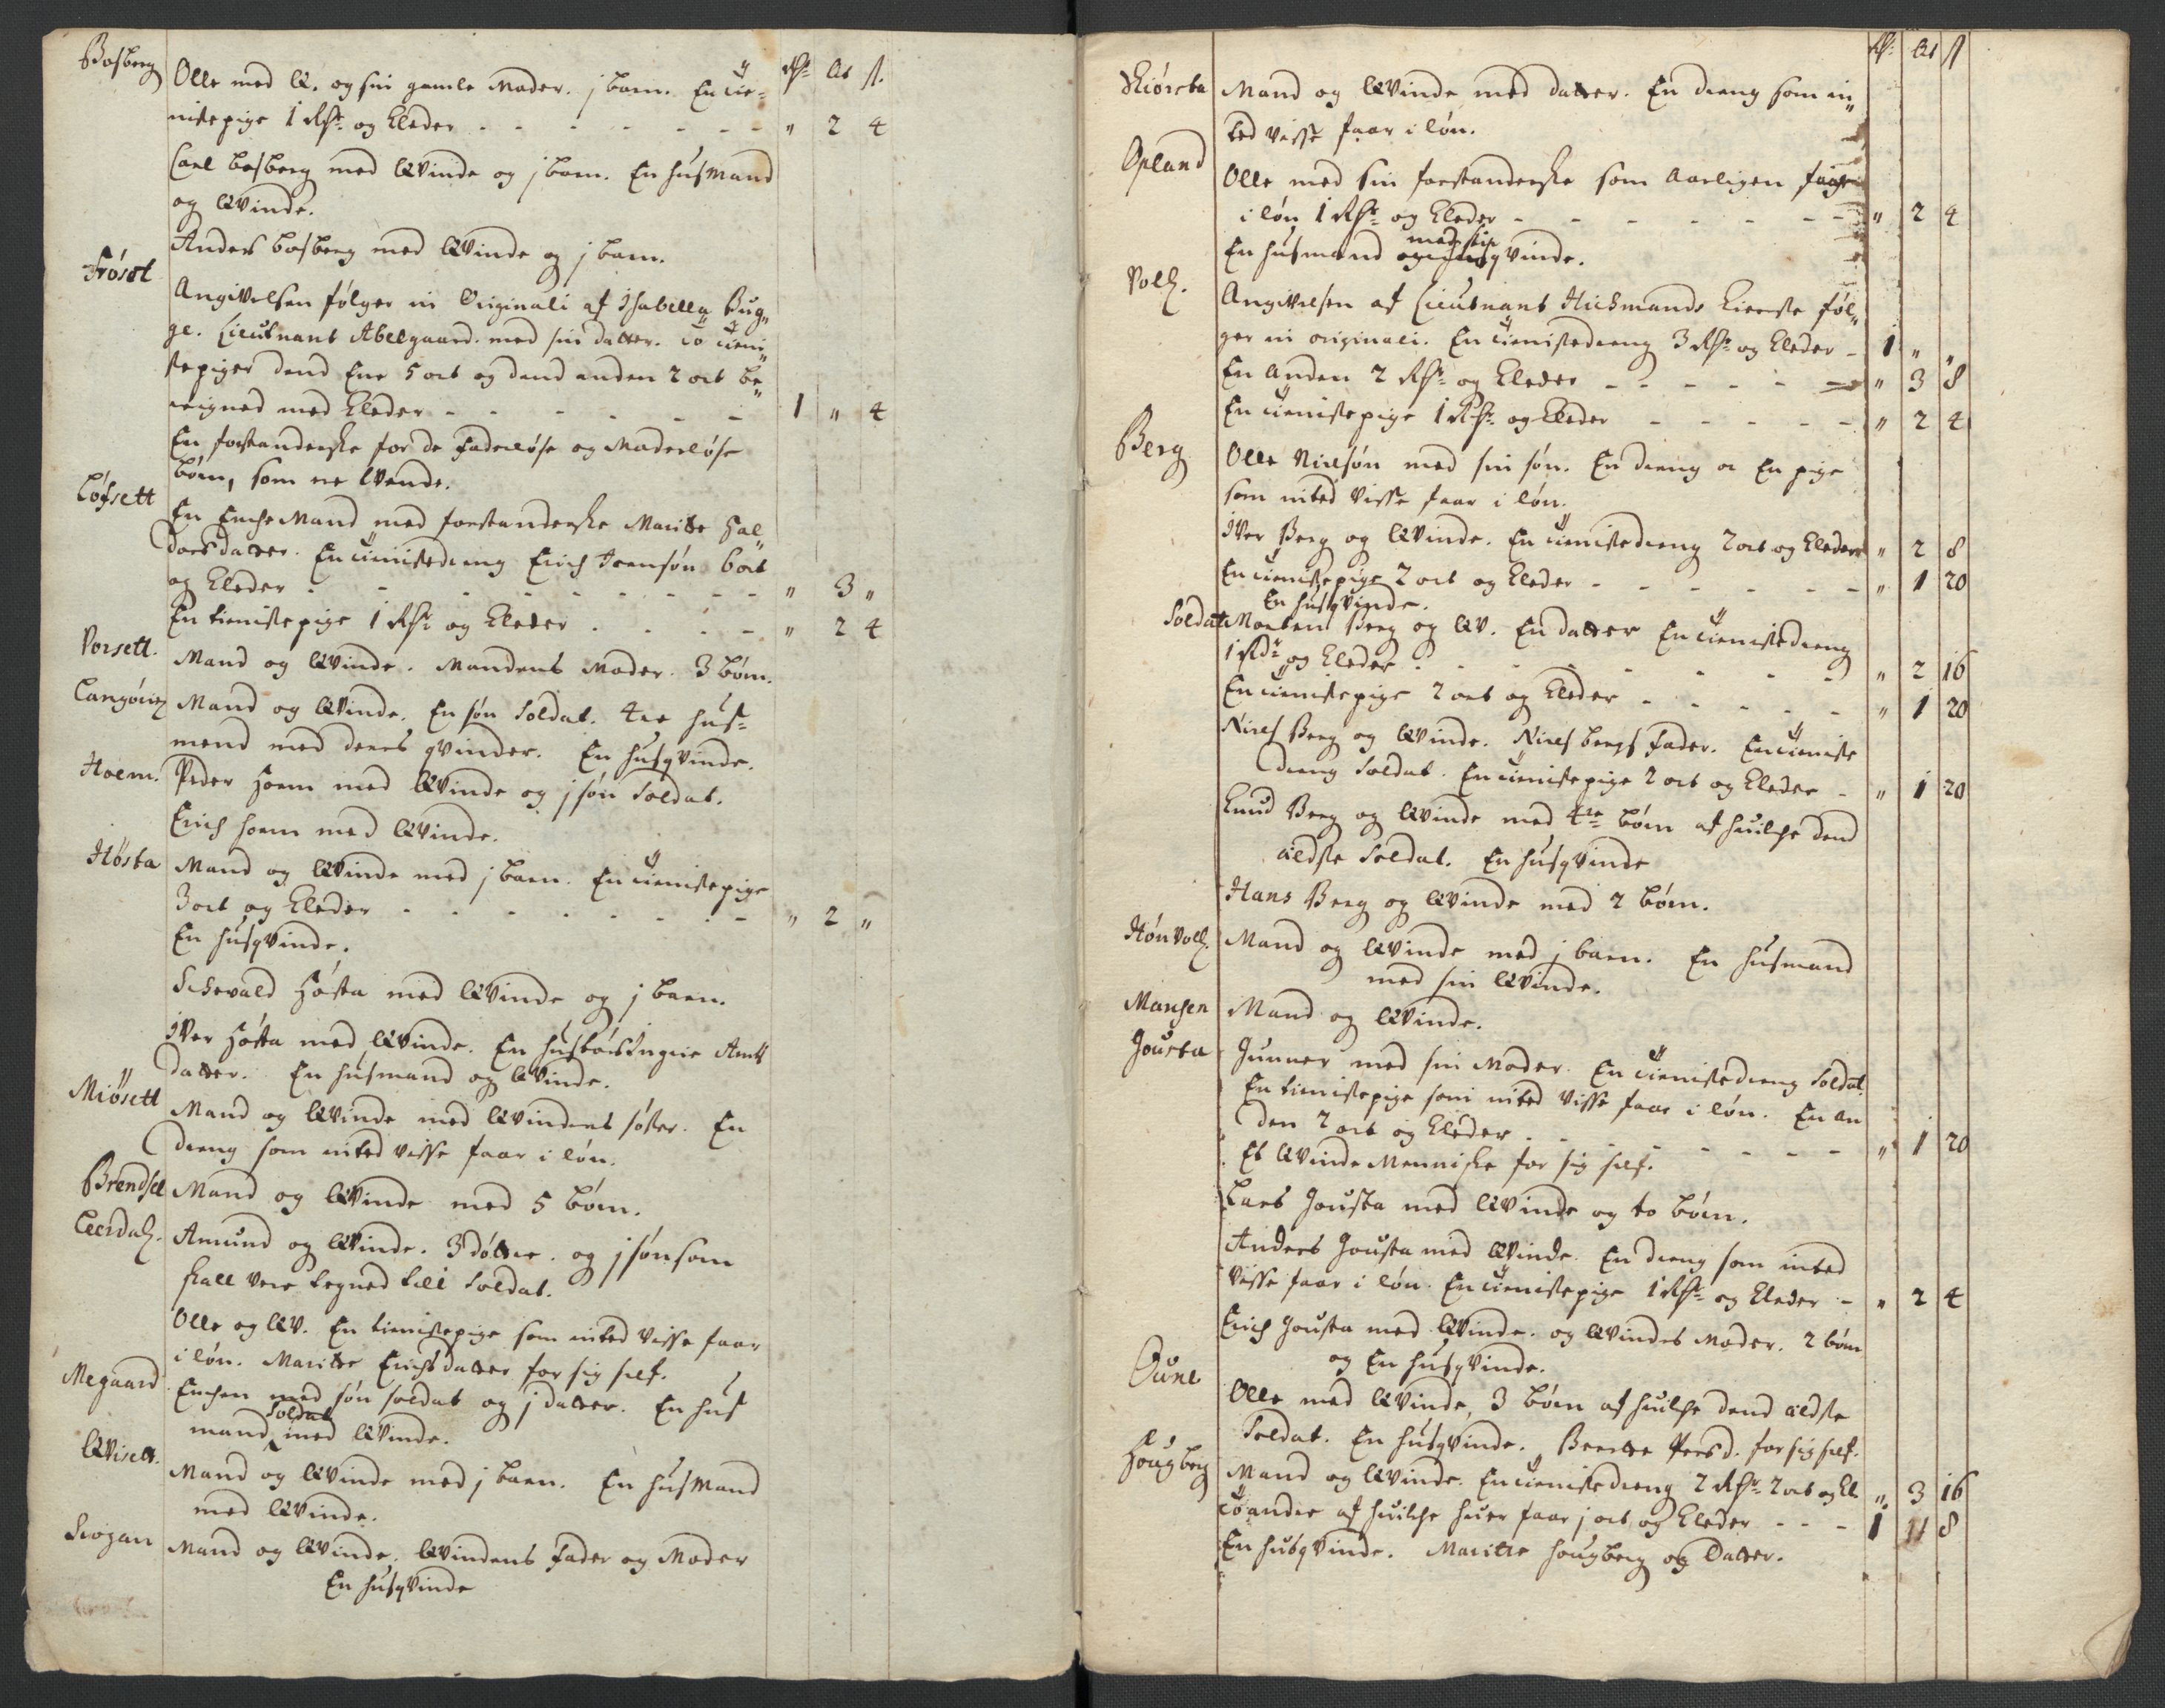 Rdr Ort ß.
Bosberg Olle med Q. og sin gamle Moder. j barn. En tie-
nistepige 1 Rdr og Kleder - - - " 2 4
Carl bosberg med Qvinde og j barn. En husmand
og Qvinde.
Anders bosberg med Qvinde og j barn.
Fröset Angivelsen følger in Originali af Isabella Bug-
ge. Lieutnant Abelgaard. med sin datter. to tieni-
stepiger dend Ene 5 ort og dend anden 2 ort be-
reigned med Kleder - - - 1 " 4
En forstanderske for de Faderløse og Moderløse
börn, som er Qvende.
Löfsett En Enche Mand med forstanderske Maritte Hal-
dorsdatter. En tienistedreng Erich Joensøn 6 ort
og Kleder - - - " 3 "
En tienistepige 1 Rdr og Kleder - - - " 2 4
Vorsett. Mand og Qvinde. Mandens Moder. 3 börn.
Langöien Mand og Qvinde. En søn Soldat. tre hus-
mend med deres qvinder. En husqvinde.
Hoem. Peder Hoem med Qvinde og j søn Soldat.
Erich hoem med Qvinde.
Hösta Mand og Qvinde med j barn. En tienistepige
3 ort og Kleder - - - " 2 "
En husqvinde.
Sichevald Hösta med Qvinde og j barn.
Iver Hösta med Qvinde. En
datter. En husmand og Qvinde.
Miösett Mand og Qvinde med Qvindens söster. En
dreng som inted visse faar i løn.
Brendsel Mand og Qvinde med 5 börn.
Leerdal. Amund og Qvinde. 3 döttre. og j søn som
skall vere tegned till Soldat.
Olle og Qv. En tienistepige som inted visse faar
i løn. Maritte Erichsdatter for sig self.
Megaard Enchen med søn soldat og j datter. En hus
mand soldat med Qvinde.
Qvisett. Mand og Qvinde med j barn. En husmand
med Qvinde.
Skogan Mand og Qvinde. Qvindens Fader og Moder
En husqvinde
R. Ort ß
Skiörsta Mand og Qvinde med datter. En dreng som in-
ted visse faar i løn.
Opland Olle med sin forstanderske som aarligen faar
i løn 1 Rdr og Kleder - - - " 2 4
En husmand med sin qvinde.
Voll. Angivelsen af Lieutnant Hichmands Kiereste føl-
ger in originali. En tienistedreng 3 Rdr og Kleder - 1 " "
En anden 2 Rdr og Kleder - - - " 3 8
En tienistepige 1 Rdr og Kleder - - - " 2 4
Berg Olle Nielsøn med sin søn. En dreng oc En pige
som inted visse faar i løn.
Iver Berg og Qvinde. En tienistedreng 7 ort og Kleder " 2 8
En tienistepige 2 ort og Kleder - - - " 1 20
En husqvinde.
Soldat Morten Berg og Qv. En datter En tienistedreng
1 Rdr og Kleder - - - " 2 16
En tienistepige 2 ort og Kleder - - - " 1 20
Niels Berg og Qvinde. Niels bergs Fader. En tieniste
dreng Soldat. En tienistepige 2 ort og Kleder - " 1 20
Knud Berg og Qvinde med 4re börn af huilche dend
eldste Soldat. En husqvinde
Hans Berg og Qvinde med 2 börn.
Hönvoll. Mand og Qvinde med j barn. En husmand
med sin Qvinde.
Mansen Mand og Qvinde.
Jousta Gunner med sin Moder. En tienistedreng Soldat.
En tienistepige som inted visse faar i løn. En an
den 2 ort og Kleder - - - " 1 20
Et Qvinde Menniske for sig self.
Lars Jousta med Qvinde og to börn.
Anders Jousta med Qvinde. En dreng som inted
visse faar i løn. En tienistepige 1 Rdr og Kleder - " 2 4
Erich Jousta med Qvinde. og Qvindes Moder. 2 börn
og En husqvinde.
Oune Olle med Qvinde, 3 börn af huilche dend eldste
Soldat. En husqvinde. Beritte Persd. for sig self.
Hougberg Mand og Qvinde. En tienistedreng 2 Rdr 2 ort og Kl. " 3 16
to andre af huilche huer faar j ort og Kleder - - - 1 11 8
En husqvinde. Maritte Hougberg og Datter.